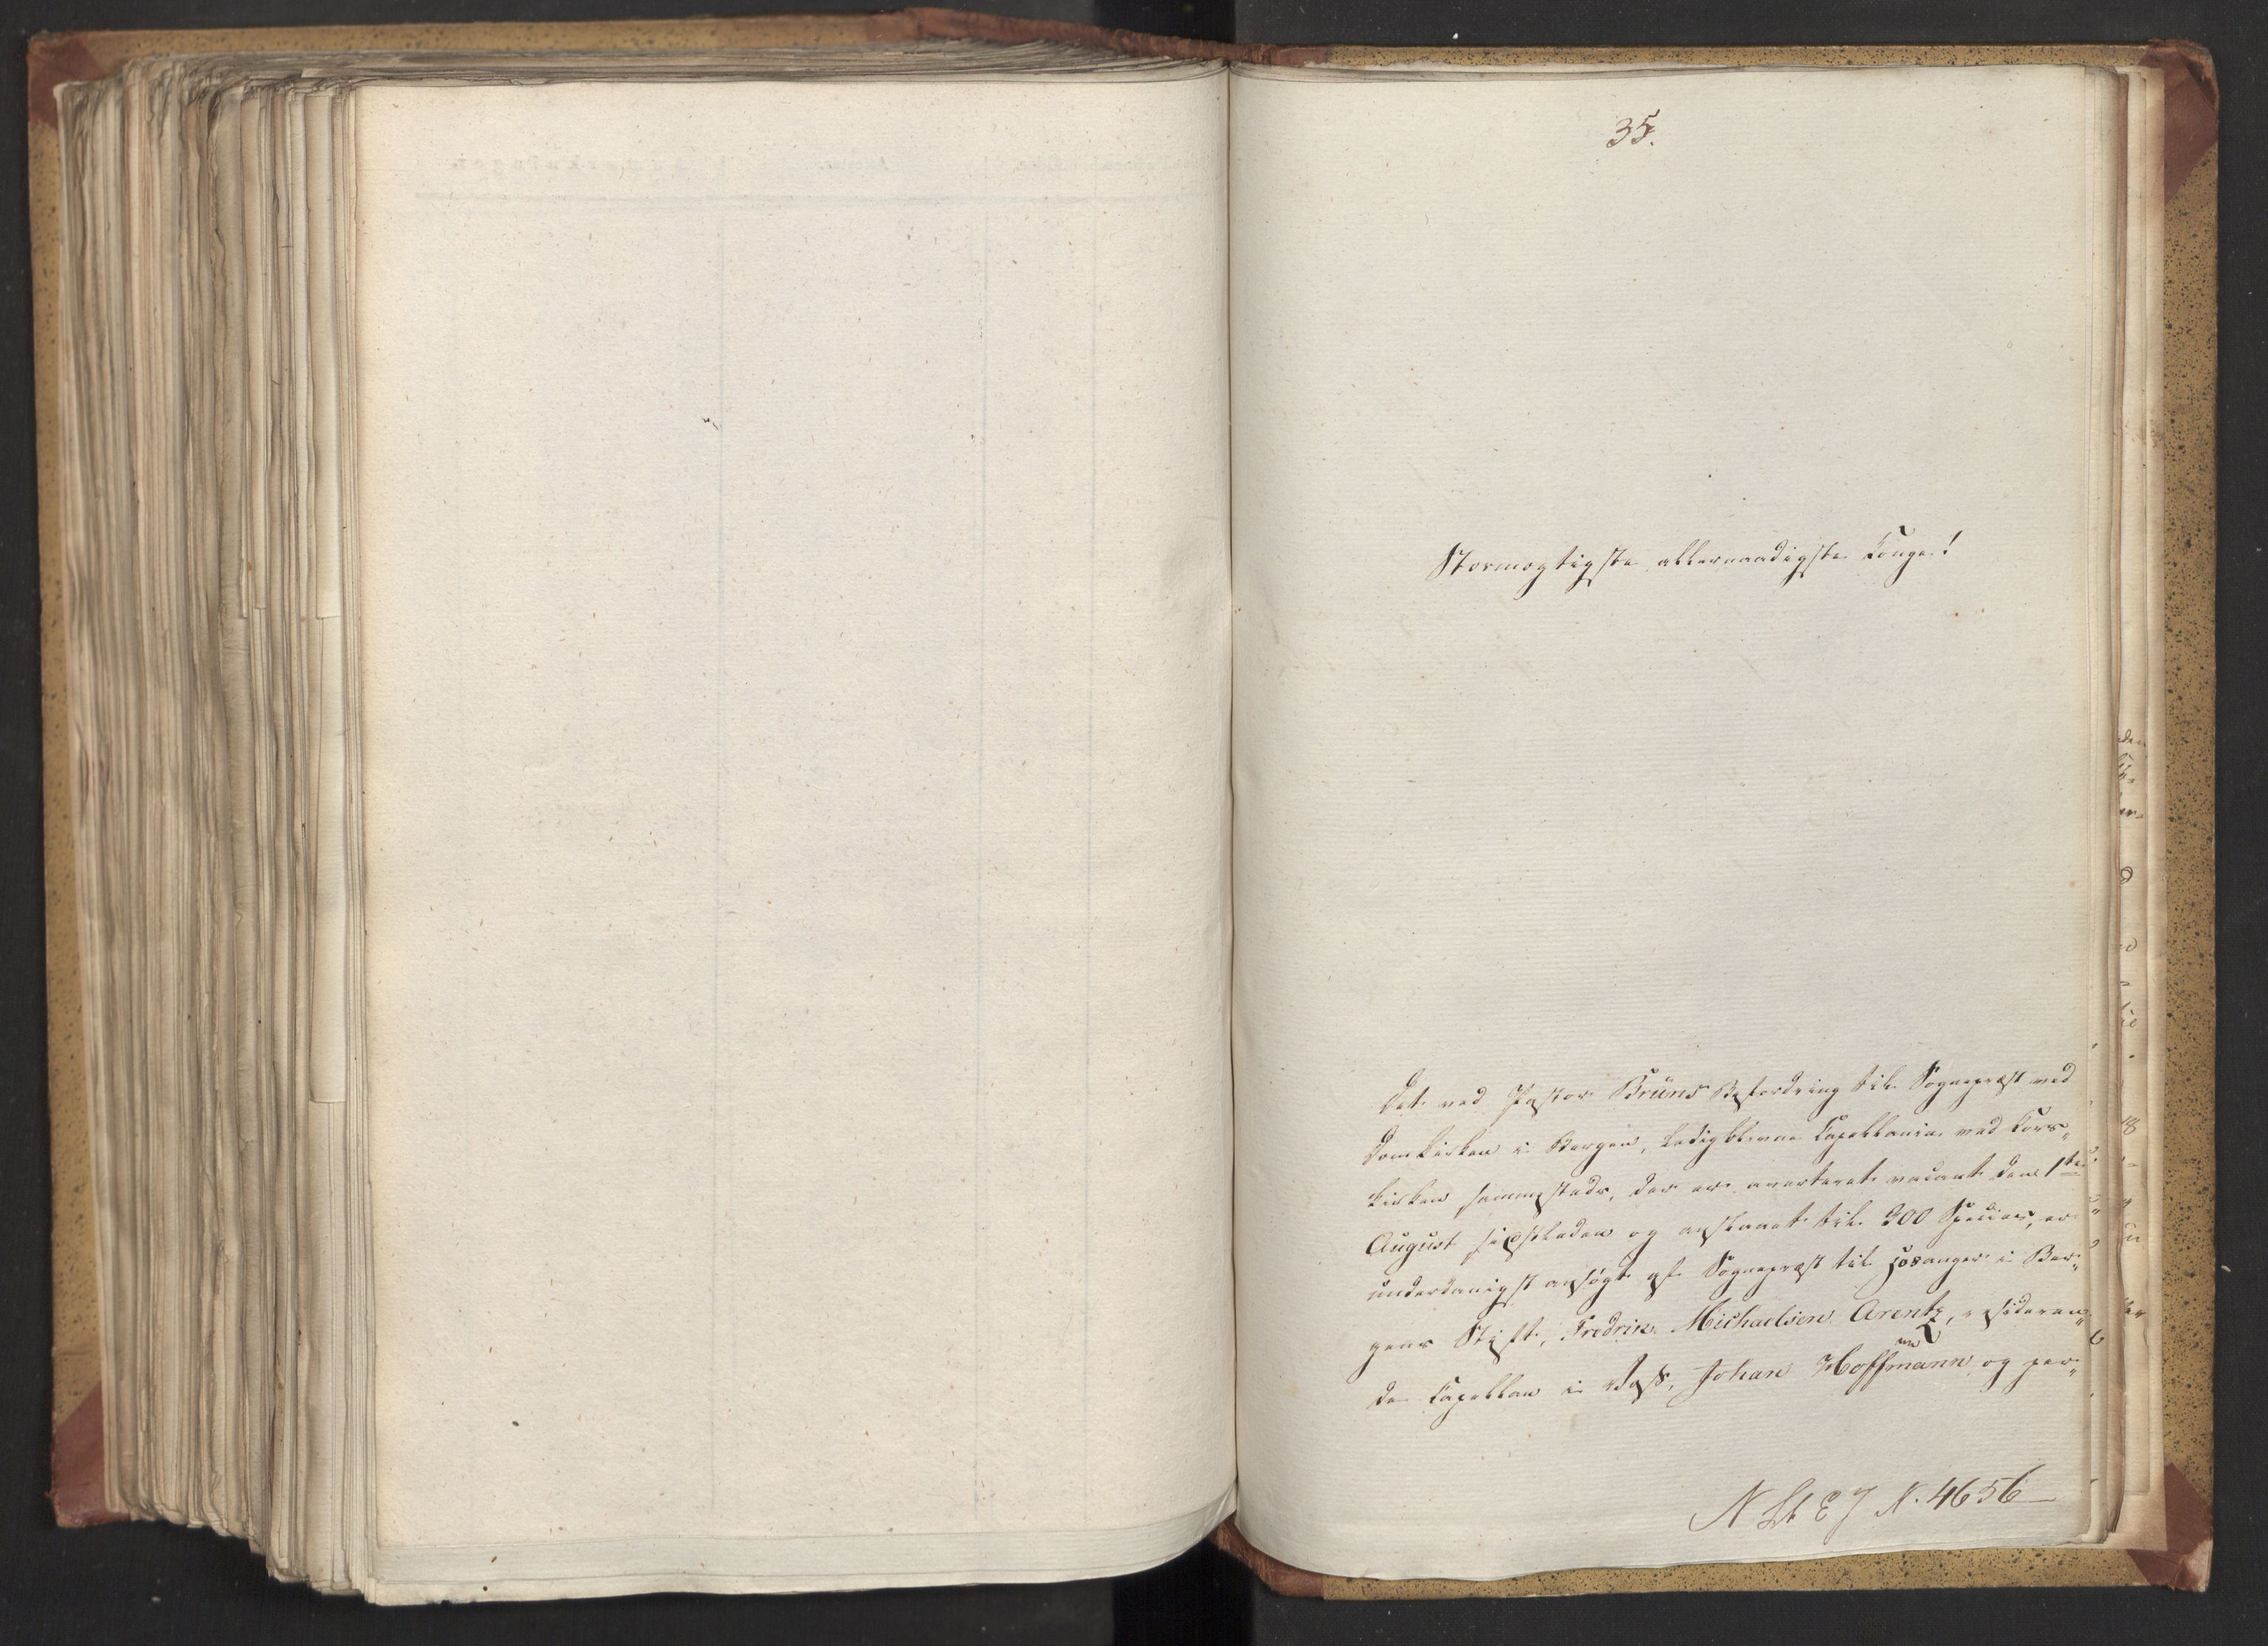 35.
Stormægtigste, allernaadigste Konge!
Det ved Pastor Brüns Befordring til Sognepræst ved
Domkirken i Bergen, ledigblevne Capellanie ved Kors„
kirken sammesteds, der er averteret vacant den 1ste
August sidstleden og anslaaet til 300 Species, er
underdanigst ansøgt af Sognepræst til Hosanger i Ber„
gens Stift, Fredrik Michaelsen Arentz, residere„n
de Capellan i Voss, Johan Hoffmann og per„
N St E J N. 4656